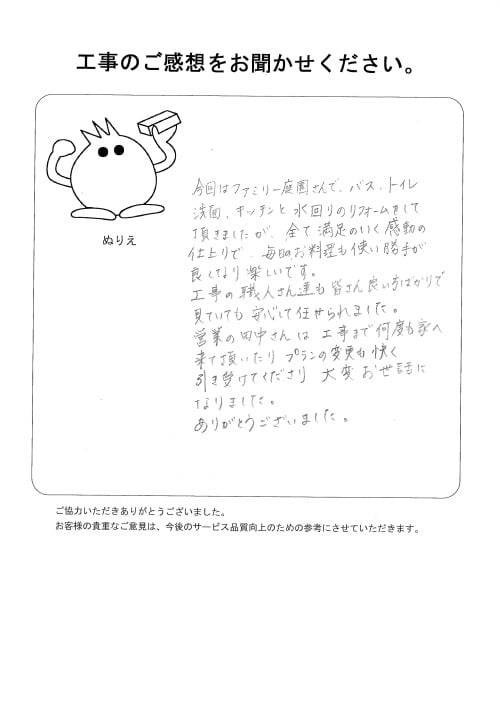 工事のご感想をお聞かせください。
ぬりえ
今回はファミリー庭園さんで、バス、トイレ
洗面、キッチンと水回りのリフォームをして
頂きましたが、全て満足のいく感動の
仕上りで、毎日のお料理も使い勝手が
良くなり楽しいです。
工事の職人さん達も皆さん良い方ばかりで
見ていても安心して任せられました。
営業の田中さんは工事まで何度も家へ
来て頂いたりプランの変更も快く
引き受けてくださり大変お世話に
なりました。
ありがとうございました。
ご協力いただきありがとうございました。
お客様の貴重なご意見は、今後のサービス品質向上のための参考にさせていただきます。